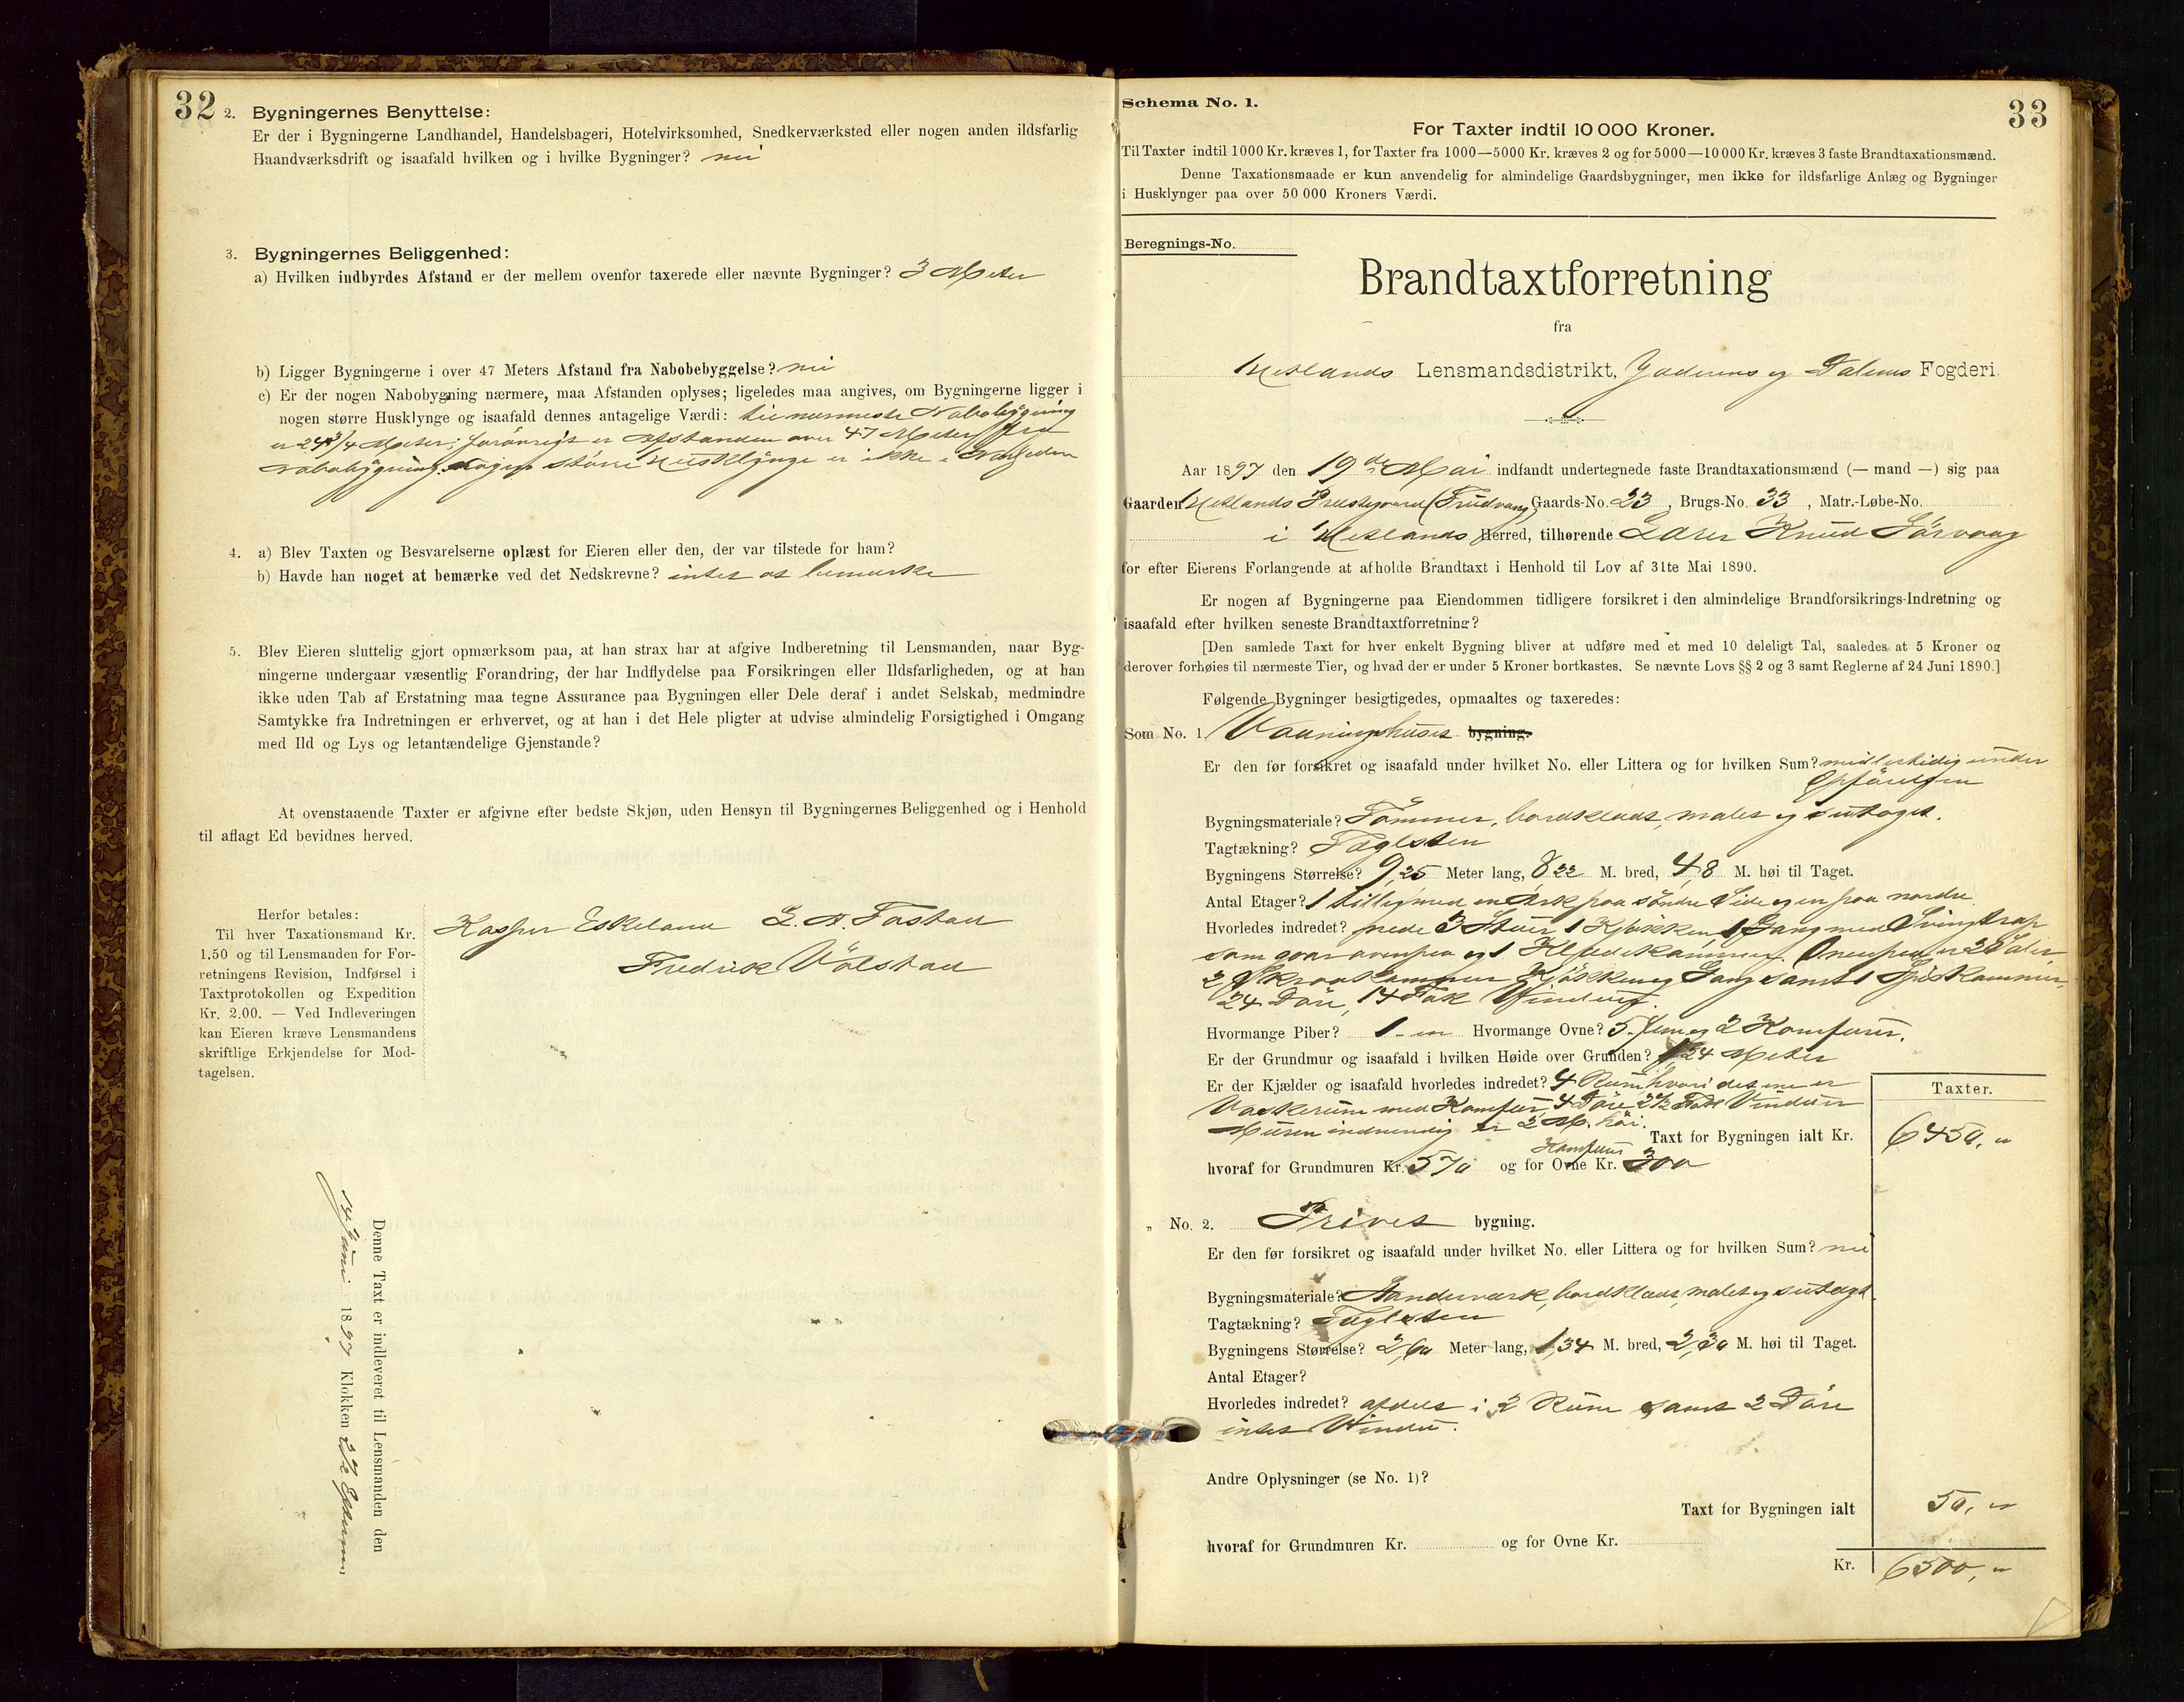 32
2. Bygningernes Benyttelse:
Er der i Bygningerne Landhandel, Handelsbageri, Hotelvirksomhed, Snedkerværksted eller nogen anden ildsfarlig
Haandværksdrift og isaafald hvilken og i hvilke Bygninger? nei
3. Bygningernes Beliggenhed:
a) Hvilken indbyrdes Afstand er der mellem ovenfor taxerede eller nævnte Bygninger? 3 Meter
b) Ligger Bygningerne i over 47 Meters Afstand fra Nabobebyggelse? nei
c) Er der nogen Nabobygning nærmere, maa Afstanden oplyses; ligeledes maa angives, om Bygningerne ligger i
nogen større Husklynge og isaafald dennes antagelige Værdi: til nærmeste Nabobygning
er 24 3/4 Meter; forøvrigt er Afstanden over 47 Meter fra
Nabobygning. Nogen større Husklynge er ikke i Nærheden
4. a) Blev Taxten og Besvarelserne oplæst for Eieren eller den, der var tilstede for ham?
b) Havde han noget at bemærke ved det Nedskrevne? intet at bemærke
5. Blev Eieren sluttelig gjort opmærksom paa, at han strax har at afgive Indberetning til Lensmanden, naar Byg-
ningerne undergaar væsentlig Forandring, der har Indflydelse paa Forsikringen eller Ildsfarligheden, og at han
ikke uden Tab af Erstatning maa tegne Assurance paa Bygningen eller Dele deraf i andet Selskab, medmindre
Samtykke fra Indretningen er erhvervet, og at han i det Hele pligter at udvise almindelig Forsigtighed i Omgang
med Ild og Lys og letantændelige Gjenstande?
At ovenstaaende Taxter er afgivne efter bedste Skjøn, uden Hensyn til Bygningernes Beliggenhed og i Henhold
til aflagt Ed bevidnes herved.
Herfor betales:
Til hver Taxationsmand Kr.
1.50 og til Lensmanden for For-
retningens Revision, Indførsel i
Taxtprotokollen og Expedition
Kr. 2.00. — Ved Indleveringen
kan Eieren kræve Lensmandens
skriftlige Erkjendelse for Mod-
tagelsen.
Kasper Eskeland L. A. Tastad
Fredrik Völstad
Denne Taxt er indleveret til Lensmanden den
14 Juni 1897 Klokken 2 1/2 Efterm.
Schema No. 1.
33
For Taxter indtil 10 000 Kroner.
Til Taxter indtil 1000 Kr. kræves 1, for Taxter fra 1000—5000 Kr. kræves 2 og for 5000—10 000 Kr. kræves 3 faste Brandtaxationsmænd.
Denne Taxationsmaade er kun anvendelig for almindelige Gaardsbygninger, men ikke for ildsfarlige Anlæg og Bygninger
i Husklynger paa over 50 000 Kroners Værdi.
Beregnings-No.
Brandtaxtforretning
fra
Hetlands Lensmandsdistrikt, Jæderens og Dalenes Fogderi.
Aar 1897 den 19de Mai indfandt undertegnede faste Brandtaxationsmænd (— mand —) sig paa
Gaarden Hetlands Prestegaard (Trudvang) Gaards-No. 23, Brugs-No. 33, Matr.-Løbe-No.
i Hetlands Herred, tilhørende Lærer Knud Sörvaag
for efter Eierens Forlangende at afholde Brandtaxt i Henhold til Lov af 31te Mai 1890.
Er nogen af Bygningerne paa Eiendommen tidligere forsikret i den almindelige Brandforsikrings-Indretning og
isaafald efter hvilken seneste Brandtaxtforretning?
[Den samlede Taxt for hver enkelt Bygning bliver at udføre med et med 10 deleligt Tal, saaledes at 5 Kroner og
derover forhøies til nærmeste Tier, og hvad der er under 5 Kroner bortkastes. Se nævnte Lovs §§ 2 og 3 samt Reglerne af 24 Juni 1890.]
Følgende Bygninger besigtigedes, opmaaltes og taxeredes:
Som No. 1. Vaaningshuset bygning.
Er den før forsikret og isaafald under hvilket No. eller Littera og for hvilken Sum? midlertidig under
Opførelsen
Bygningsmateriale? Tømmer, bordklædt, malet og sutaget.
Tagtækning? Taglsten
Bygningens Størrelse? 9,25 Meter lang, 8,22 M. bred, 4,8 M. høi til Taget.
Antal Etager? 1 tilligemed en Ark paa søndre Side og en paa nordre
Hvorledes indredet? nede 3 Stuer 1 Kjøkken, 1 Gang med Svingtrap
som gaar ovenpaa og 1 Klædekammer. Ovenpaa er 2 Sale,
2 Skraakammer Kjøkken og Gang samt 1 Spiskammer,
24 Døre, 14 Fak Vinduer.
Hvormange Piber? 1 - en Hvormange Ovne? 5-fem og 2 Komfurer.
Er der Grundmur og isaafald i hvilken Høide over Grunden? 1,24 Meter
Er der Kjælder og isaafald hvorledes indredet? 4 Rum hvori det ene er
Vaskerum med Komfur, 4 Døre 2 1/2 Fak Vinduer
Muren indvendig er 2 M. høi.
Taxter.
Taxt for Bygningen ialt Kr. 6450,"
Komfurer
hvoraf for Grundmuren Kr. 570 og for Ovne Kr. 300
" No. 2. Privet bygning.
Er den før forsikret og isaafald under hvilket No. eller Littera og for hvilken Sum? nei
Bygningsmateriale? Standerværk, bordklædt, malet og sutaget
Tagtækning? Taglsten
Bygningens Størrelse? 2,60 Meter lang, 1,34 M. bred, 2,30 M. høi til Taget.
Antal Etager?
Hvorledes indredet? afdelt i 2 Rum samt 2 Døre
intet Vindu.
Andre Oplysninger (se No. 1)?
Taxt for Bygningen ialt 50,"
hvoraf for Grundmuren Kr. og for Ovne Kr.
Kr. 6500,"